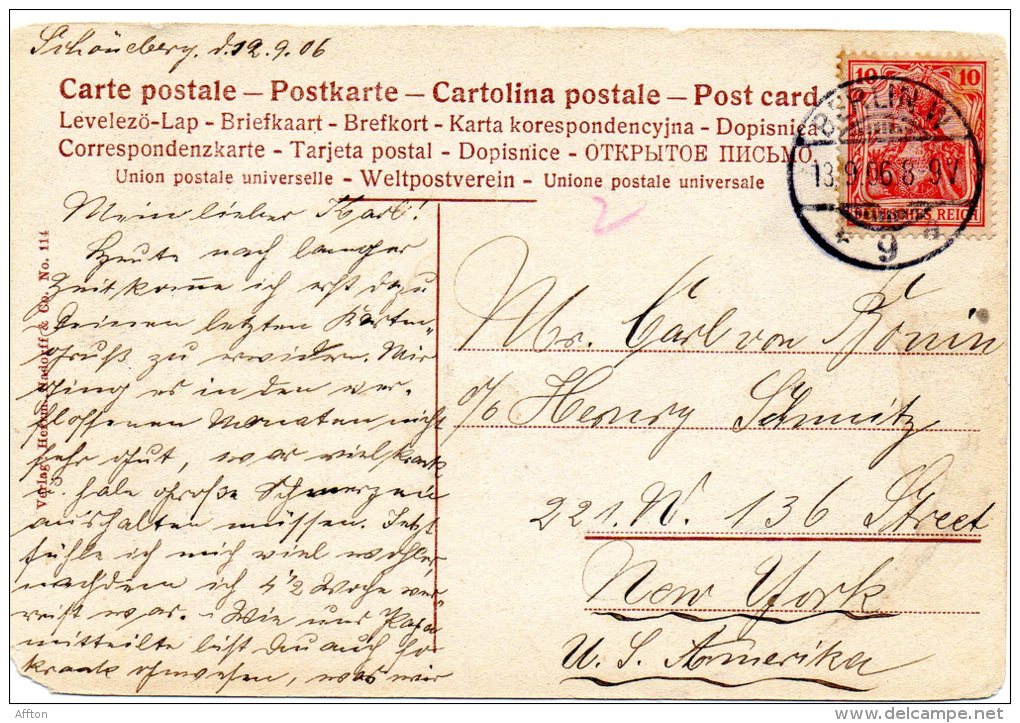 Schöneberg, d. 12. 9. 06
Carte postale – Postkarte – Cartolina postale – Post card
Levelezö-Lap - Briefkaart - Brefkort - Karta korespondencyjna - Dopisnica
Correspondenzkarte - Tarjeta postal - Dopisnice - ОТКРЫТОЕ ПИСЬМО
Union postale universelle - Weltpostverein - Unione postale universale
10 10
DEUTSCHES REICH
BERLIN W
13.9.06 8-9V
* 9 a
2
Mein lieber Karl!
Heute nach langer
Zeit komme ich erst dazu
Deinen letzten Karten-
Gruß zu erwidern. Mir
ging es in den ver-
flossenen Monaten nicht
sehr gut, war viel krank
u. habe große Schmerzen
aushalten müssen. Jetzt
fühle ich mich viel wohler,
nachdem ich 4 1/2 Woche ver-
reist war. – Wie uns Papa
mitteilte bist Du auch
krank gewesen, was wir
Verlag: Herm. & Co. No. 114
Mr. Carl von Bonin
c/o Henry Schmitz
221. W. 136 Street
New York
U. S. Amerika
Affton
www.delcampe.net